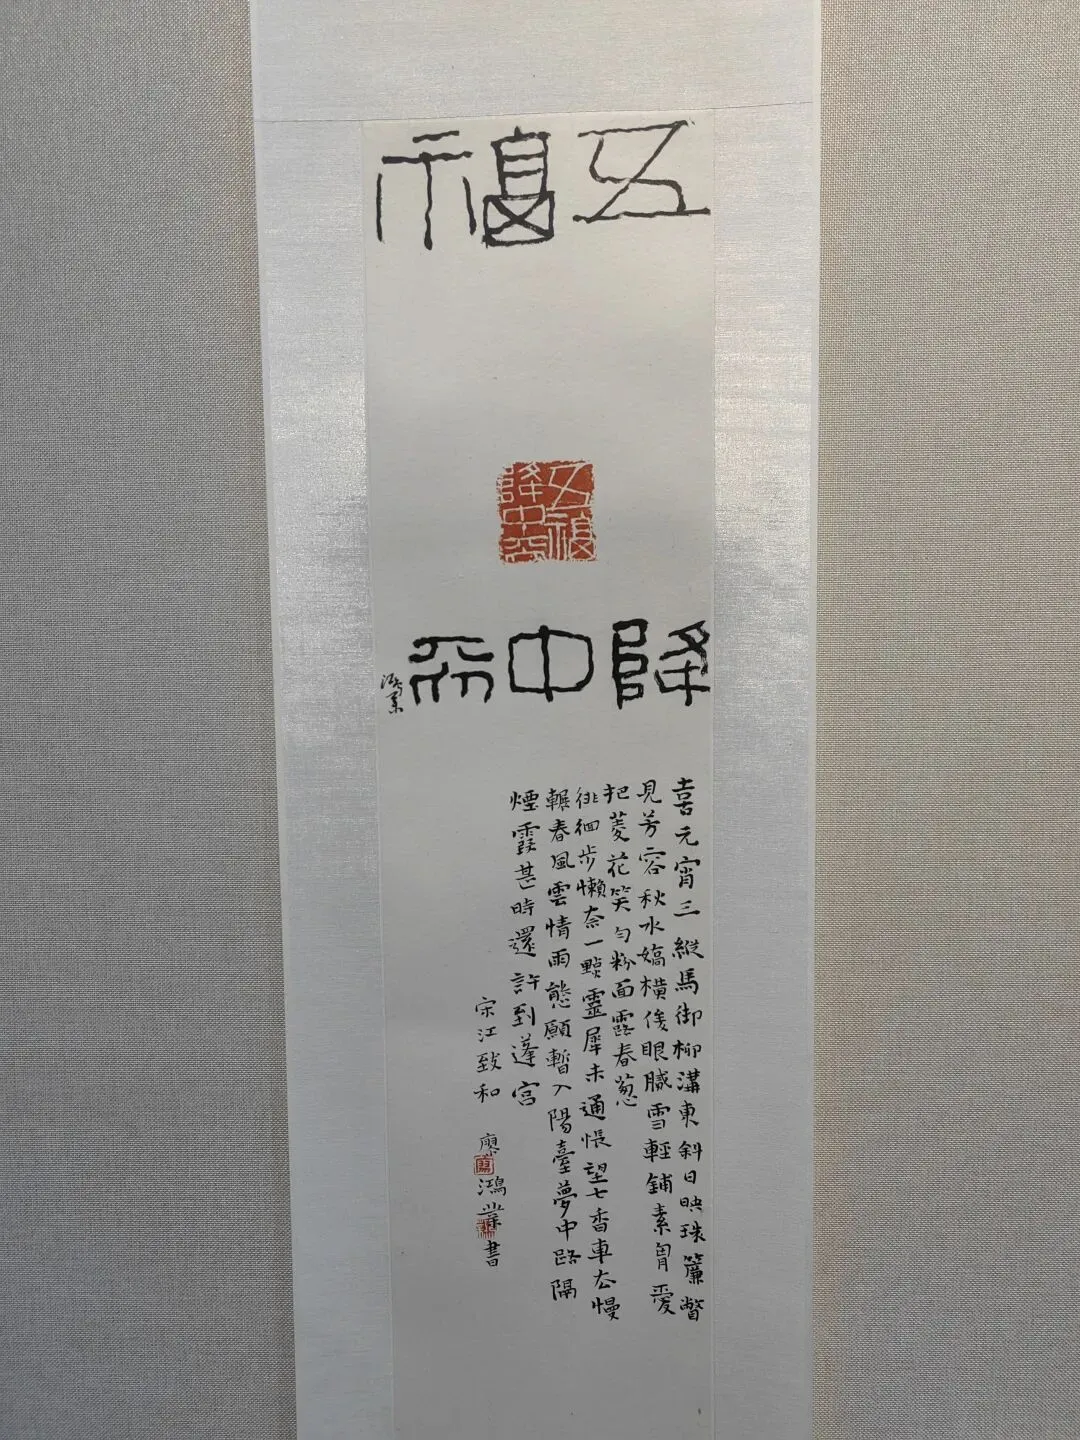 五福
五福
降中天
降中天
鴻業
喜元宵三縱馬御柳溝東斜日映珠簾瞥
見芳容秋水嬌橫俊眼膩雪輕鋪素胷愛
把菱花笑勻粉面露春葱
徘徊步懶奈一點靈犀未通悵望七香車去慢
輾春風雲情雨態願暫入陽臺夢中路隔
煙霞甚時還許到蓬宮
宋江致和 廖鴻業書